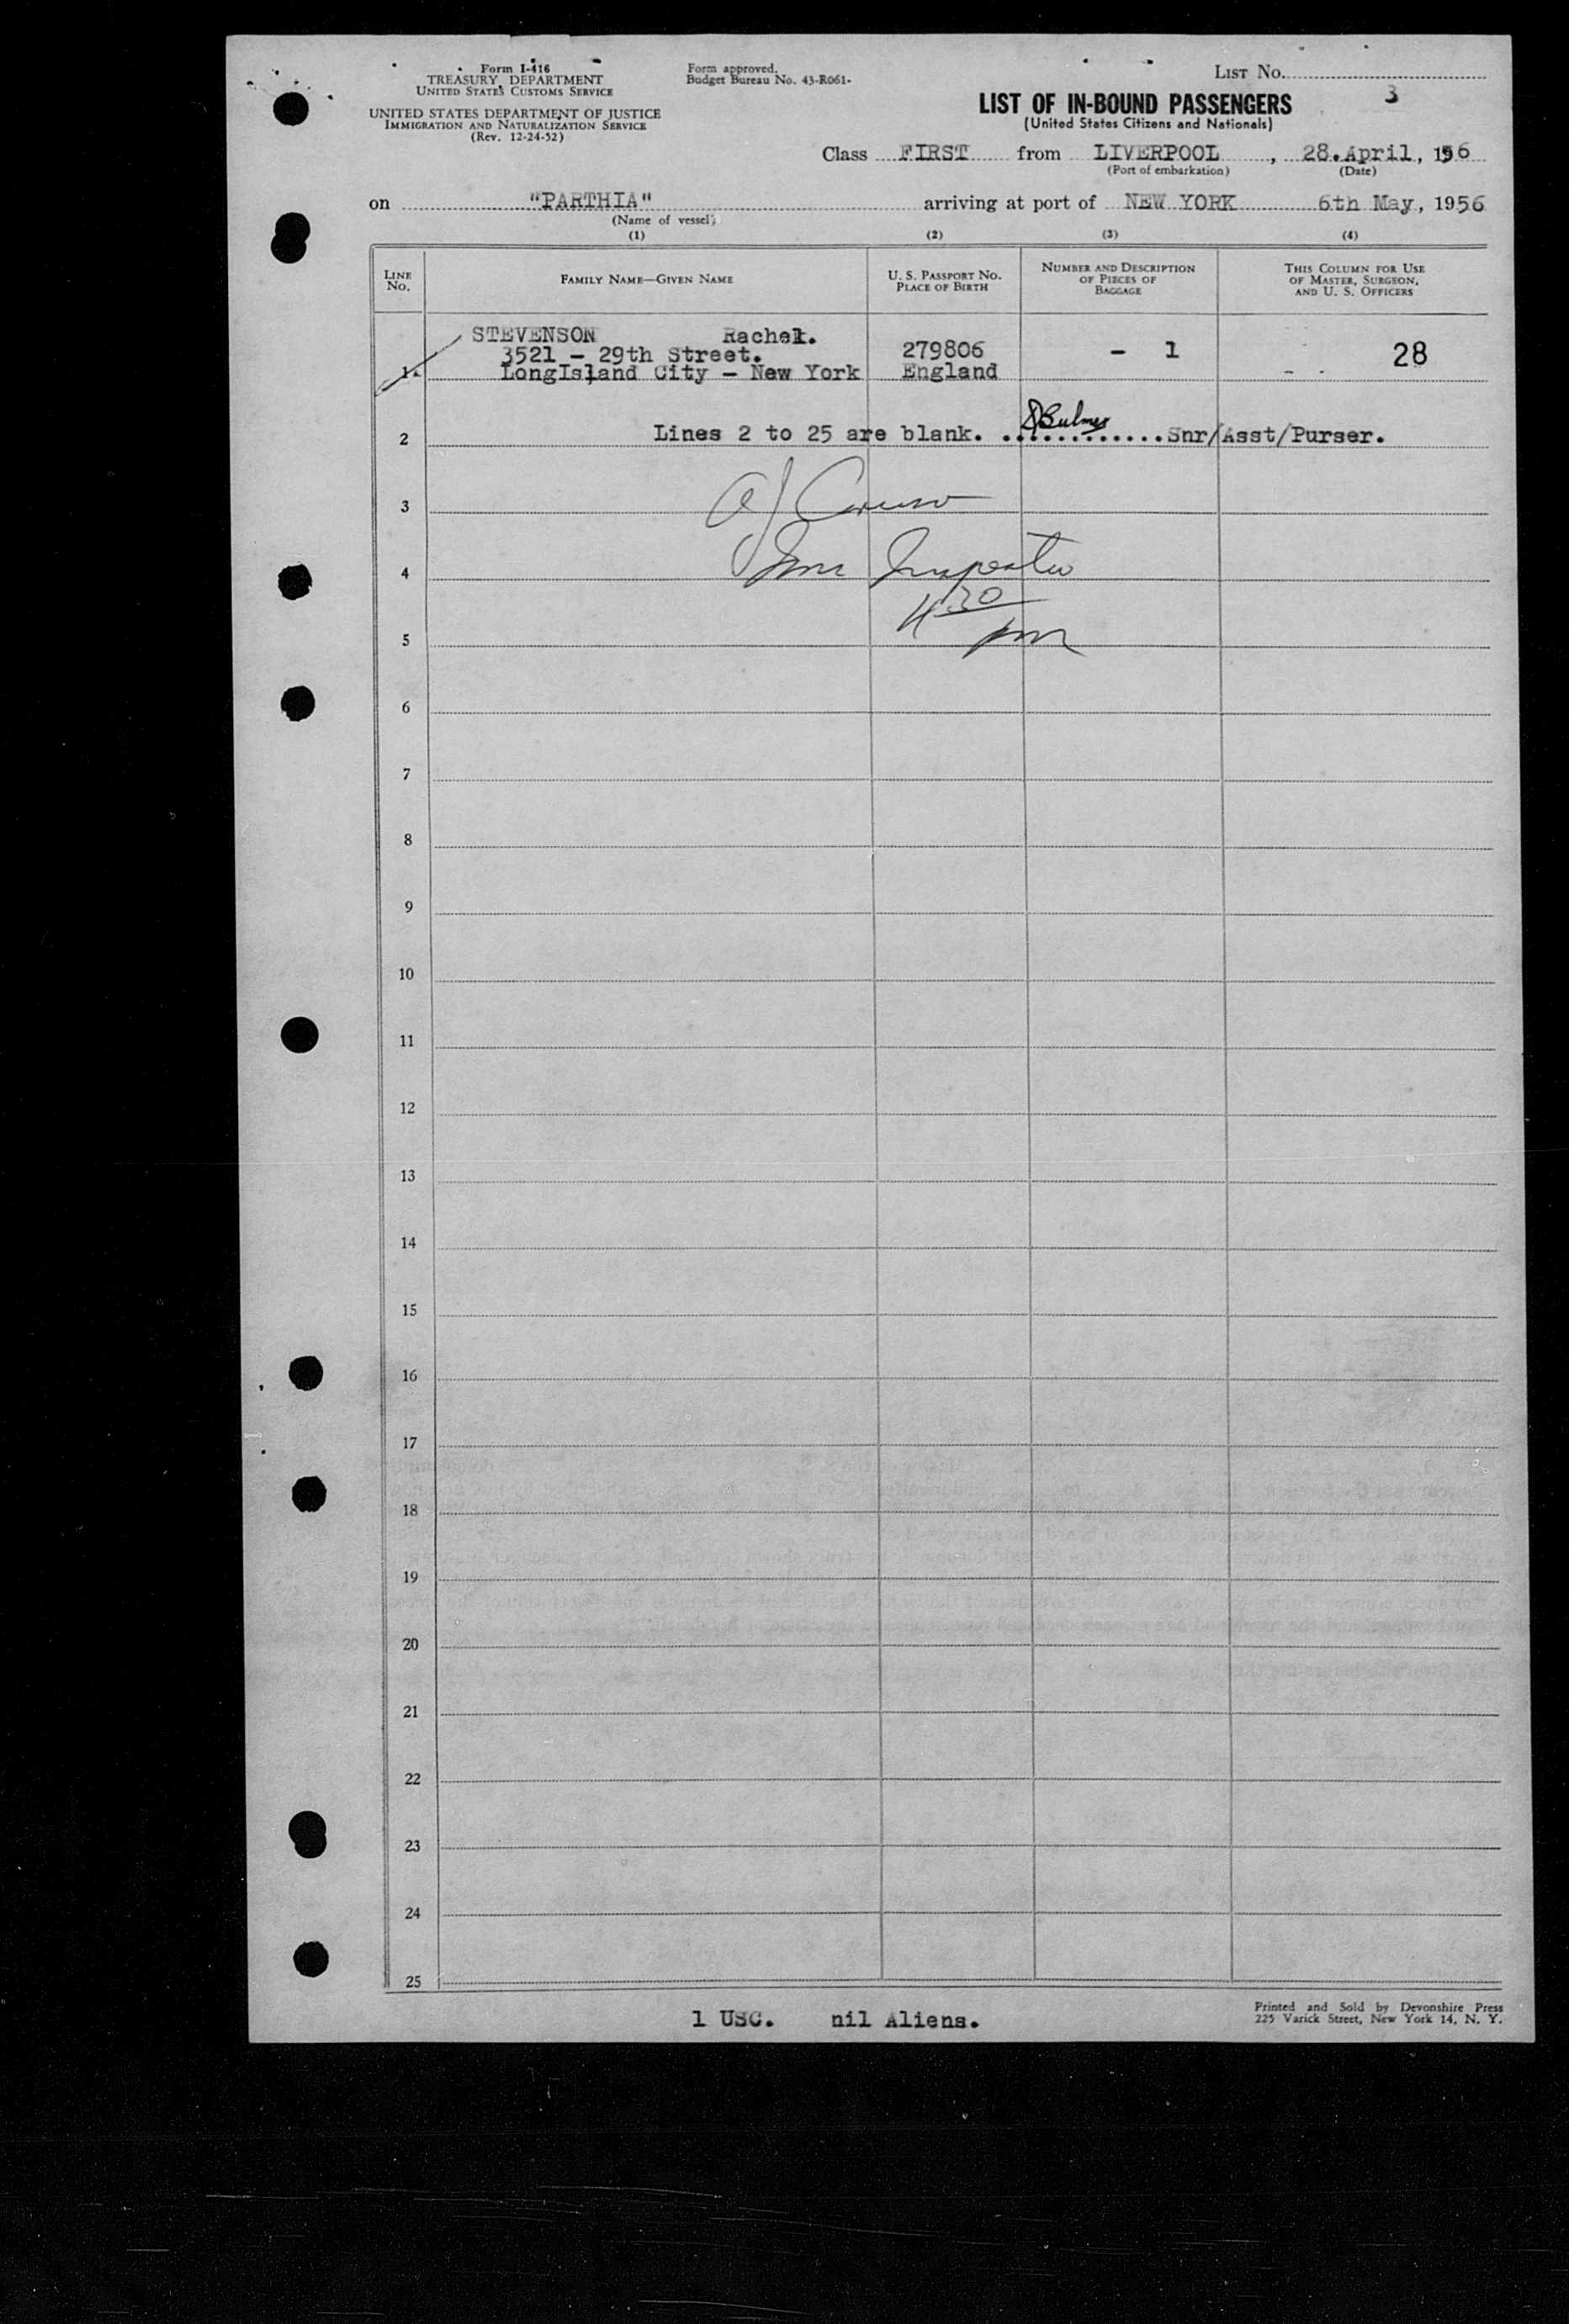 Form I-416
TREASURY DEPARTMENT
UNITED STATES CUSTOMS SERVICE
UNITED STATES DEPARTMENT OF JUSTICE
IMMIGRATION AND NATURALIZATION SERVICE
(Rev. 12-24-52)
Form approved.
Budget Bureau No. 43-R061-
LIST No.
3
LIST OF IN-BOUND PASSENGERS
(United States Citizens and Nationals)
Class FIRST from LIVERPOOL, 28.April, 1956
(Port of embarkation) (Date)
on "PARTHIA" arriving at port of NEW YORK 6th May, 1956
(Name of vessel)
(1) (2) (3) (4)
LINE No. FAMILY NAME—GIVEN NAME U. S. PASSPORT No. PLACE OF BIRTH NUMBER AND DESCRIPTION OF PIECES OF BAGGAGE THIS COLUMN FOR USE OF MASTER, SURGEON, AND U. S. OFFICERS
STEVENSON Rachel.
3521 - 29th Street. 279806 - 1 28
1 LongIsland City - New York England
2 Lines 2 to 25 are blank. Bulmer Snr/Asst/Purser.
3 Caruso
4 Imm Inspector
4 30
5 pm
6
7
8
9
10
11
12
13
14
15
16
17
18
19
20
21
22
23
24
25
1 USC. nil Aliens.
Printed and Sold by Devonshire Press
225 Varick Street, New York 14, N. Y.